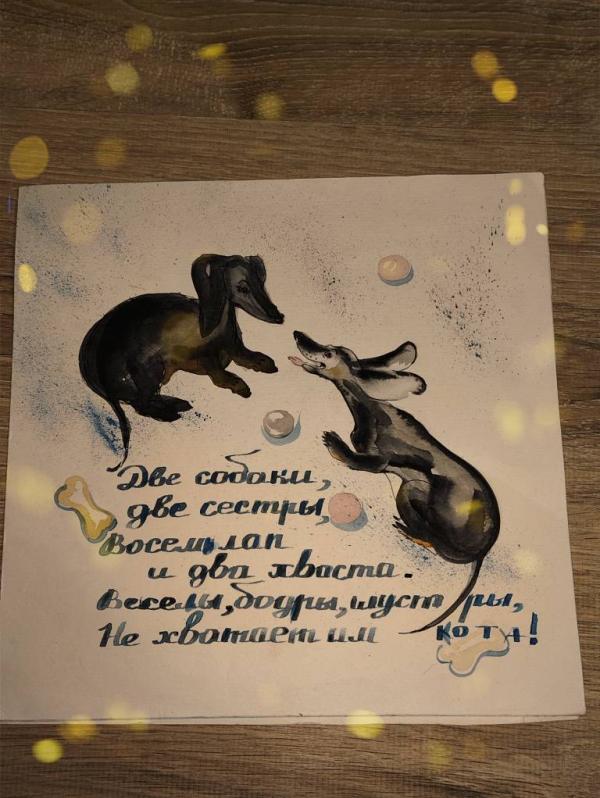 Две собаки,
две сестры,
Восемь лап
и два хвоста.
Веселы, бодры, шустры,
Не хватает им кота!